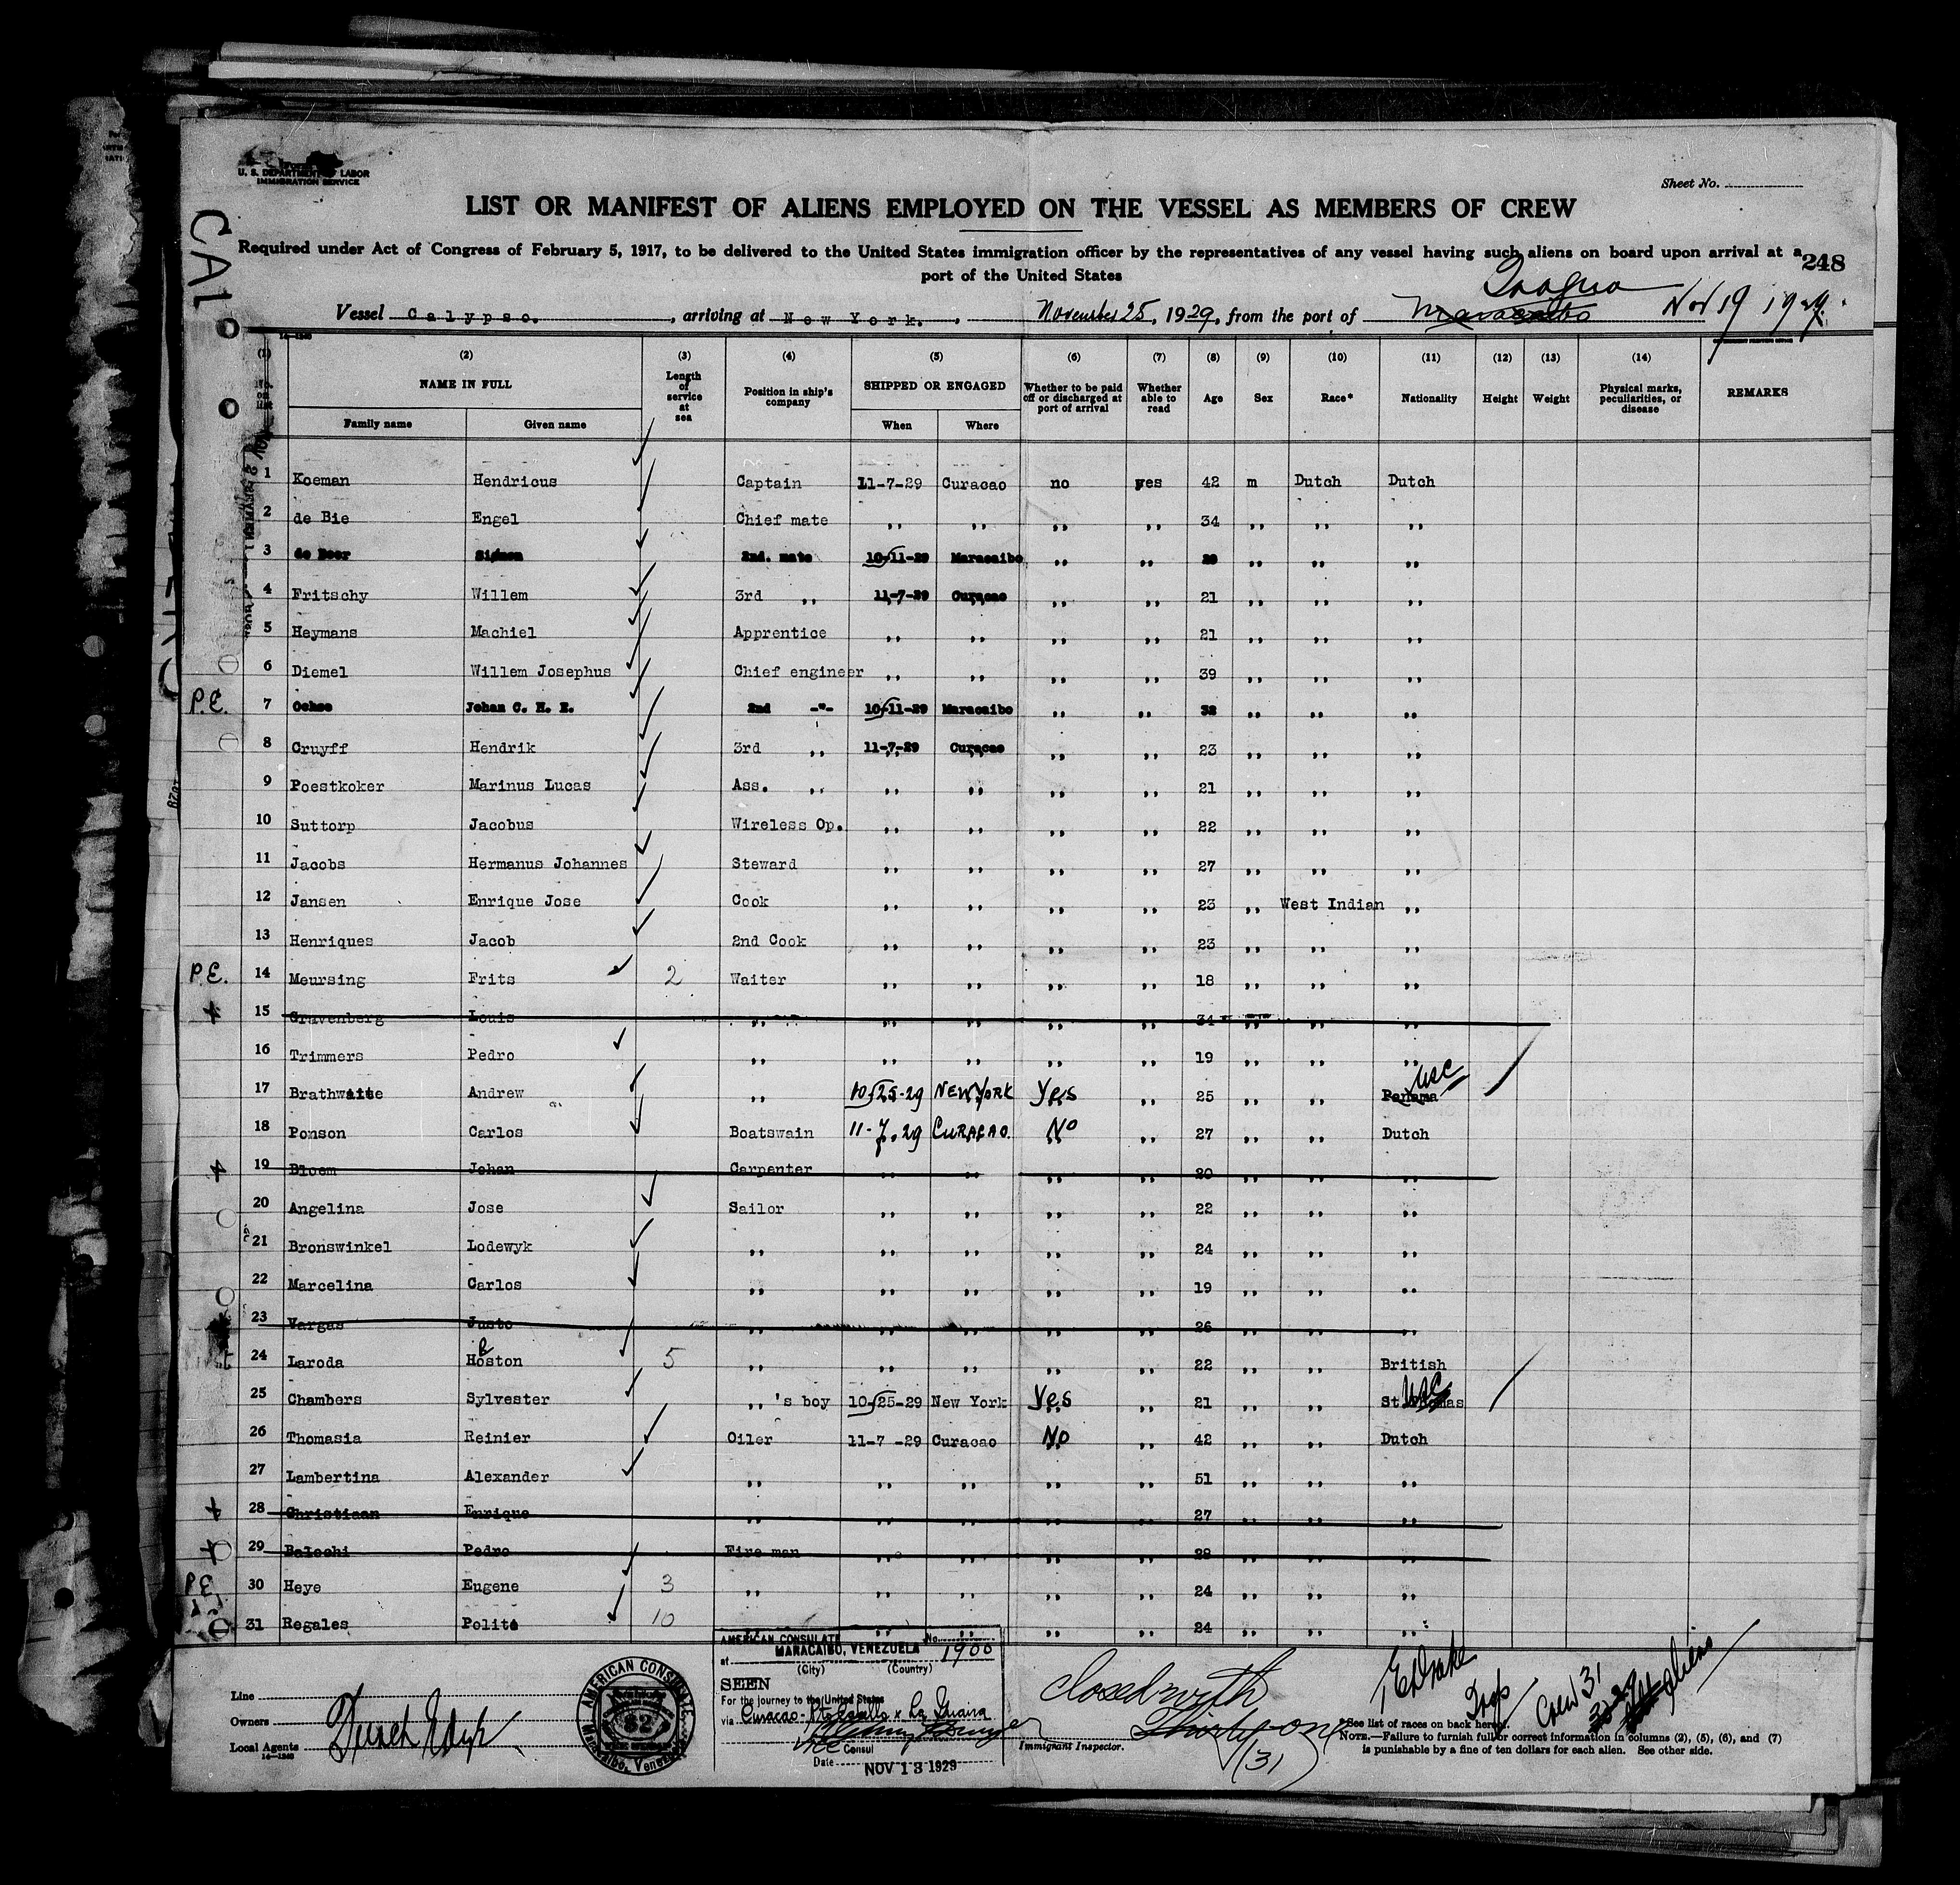 U. S. DEPARTMENT OF LABOR
IMMIGRATION SERVICE
Sheet No.
LIST OR MANIFEST OF ALIENS EMPLOYED ON THE VESSEL AS MEMBERS OF CREW
Required under Act of Congress of February 5, 1917, to be delivered to the United States immigration officer by the representatives of any vessel having such aliens on board upon arrival at a
port of the United States
248
CAL
Vessel Calypso. , arriving at New York. , November 25, 1929, from the port of Maracaibo Nov 19 1929.
(1) (2) (3) (4) (5) (6) (7) (8) (9) (10) (11) (12) (13) (14)
No. on list NAME IN FULL Family name Given name Length of service at sea Position in ship's company SHIPPED OR ENGAGED When Where Whether to be paid off or discharged at port of arrival Whether able to read Age Sex Race* Nationality Height Weight Physical marks, peculiarities, or disease REMARKS
1 Koeman Hendricus Captain 11-7-29 Curacao no yes 42 m Dutch Dutch
2 de Bie Engel Chief mate ,, ,, ,, ,, 34 ,, ,, ,,
3 de Boer Simon 2nd. mate 10-11-29 Maracaibo ,, ,, 29 ,, ,, ,,
4 Fritschy Willem 3rd ,, 11-7-29 Curacao ,, ,, 21 ,, ,, ,,
5 Heymans Machiel Apprentice ,, ,, ,, ,, 21 ,, ,, ,,
6 Diemel Willem Josephus Chief engineer ,, ,, ,, ,, 39 ,, ,, ,,
P.E. 7 Ochse Johan C. H. E. 2nd -"- 10-11-29 Maracaibo ,, ,, 32 ,, ,, ,,
8 Cruyff Hendrik 3rd ,, 11-7-29 Curacao ,, ,, 23 ,, ,, ,,
9 Poestkoker Marinus Lucas Ass. ,, ,, ,, ,, ,, 21 ,, ,, ,,
10 Suttorp Jacobus Wireless Op. ,, ,, ,, ,, 22 ,, ,, ,,
11 Jacobs Hermanus Johannes Steward ,, ,, ,, ,, 27 ,, ,, ,,
12 Jansen Enrique Jose Cook ,, ,, ,, ,, 23 ,, West Indian ,,
13 Henriques Jacob 2nd Cook ,, ,, ,, ,, 23 ,, ,, ,,
P.E. 14 Meursing Frits 2 Waiter ,, ,, ,, ,, 18 ,, ,, ,,
15 Gravenberg Louis ,, ,, ,, ,, ,, 34 ,, ,, ,,
16 Trimmers Pedro ,, ,, ,, ,, ,, 19 ,, ,, ,,
17 Brathwaite Andrew ,, 10-25-29 NEW YORK Yes ,, 25 ,, ,, Panama USC
18 Ponson Carlos Boatswain 11-7-29 CURACAO. No ,, 27 ,, ,, Dutch
19 Bloem Johan Carpenter ,, ,, ,, ,, 20 ,, ,, ,,
20 Angelina Jose Sailor ,, ,, ,, ,, 22 ,, ,, ,,
21 Bronswinkel Lodewyk ,, ,, ,, ,, ,, 24 ,, ,, ,,
22 Marcelina Carlos ,, ,, ,, ,, ,, 19 ,, ,, ,,
23 Vargas Justo ,, ,, ,, ,, ,, 26 ,, ,, ,,
24 Laroda Hoston 5 ,, ,, ,, ,, ,, 22 ,, ,, British
25 Chambers Sylvester ,, 's boy 10-25-29 New York Yes ,, 21 ,, ,, St.Thomas USC
26 Thomasia Reinier Oiler 11-7 -29 Curacao No ,, 42 ,, ,, Dutch
27 Lambertina Alexander ,, ,, ,, ,, ,, 51 ,, ,, ,,
28 Christiaan Enrique ,, ,, ,, ,, ,, 27 ,, ,, ,,
29 Balochi Pedro Fire man ,, ,, ,, ,, 28 ,, ,, ,,
P.E. 30 Heye Eugene 3 ,, ,, ,, ,, ,, 24 ,, ,, ,,
31 Regales Polite 10 ,, ,, ,, ,, 24 ,, ,, ,,
Line
Owners
Local Agents
14—1240
AMERICAN CONSULATE
Maracaibo, Venezuela
82
AMERICAN CONSULATE No. 1900
at MARACAIBO, VENEZUELA
(City) (Country)
SEEN
For the journey to the United States
via Curacao - Pto Cabello & La Guaira
Vice Consul
Date NOV 13 1929
Closed with
Thirty-one
(31)
Immigrant Inspector.
E Drake
Crew 31
29 aliens
*See list of races on back hereof.
NOTE.—Failure to furnish full or correct information in columns (2), (5), (6), and (7)
is punishable by a fine of ten dollars for each alien. See other side.